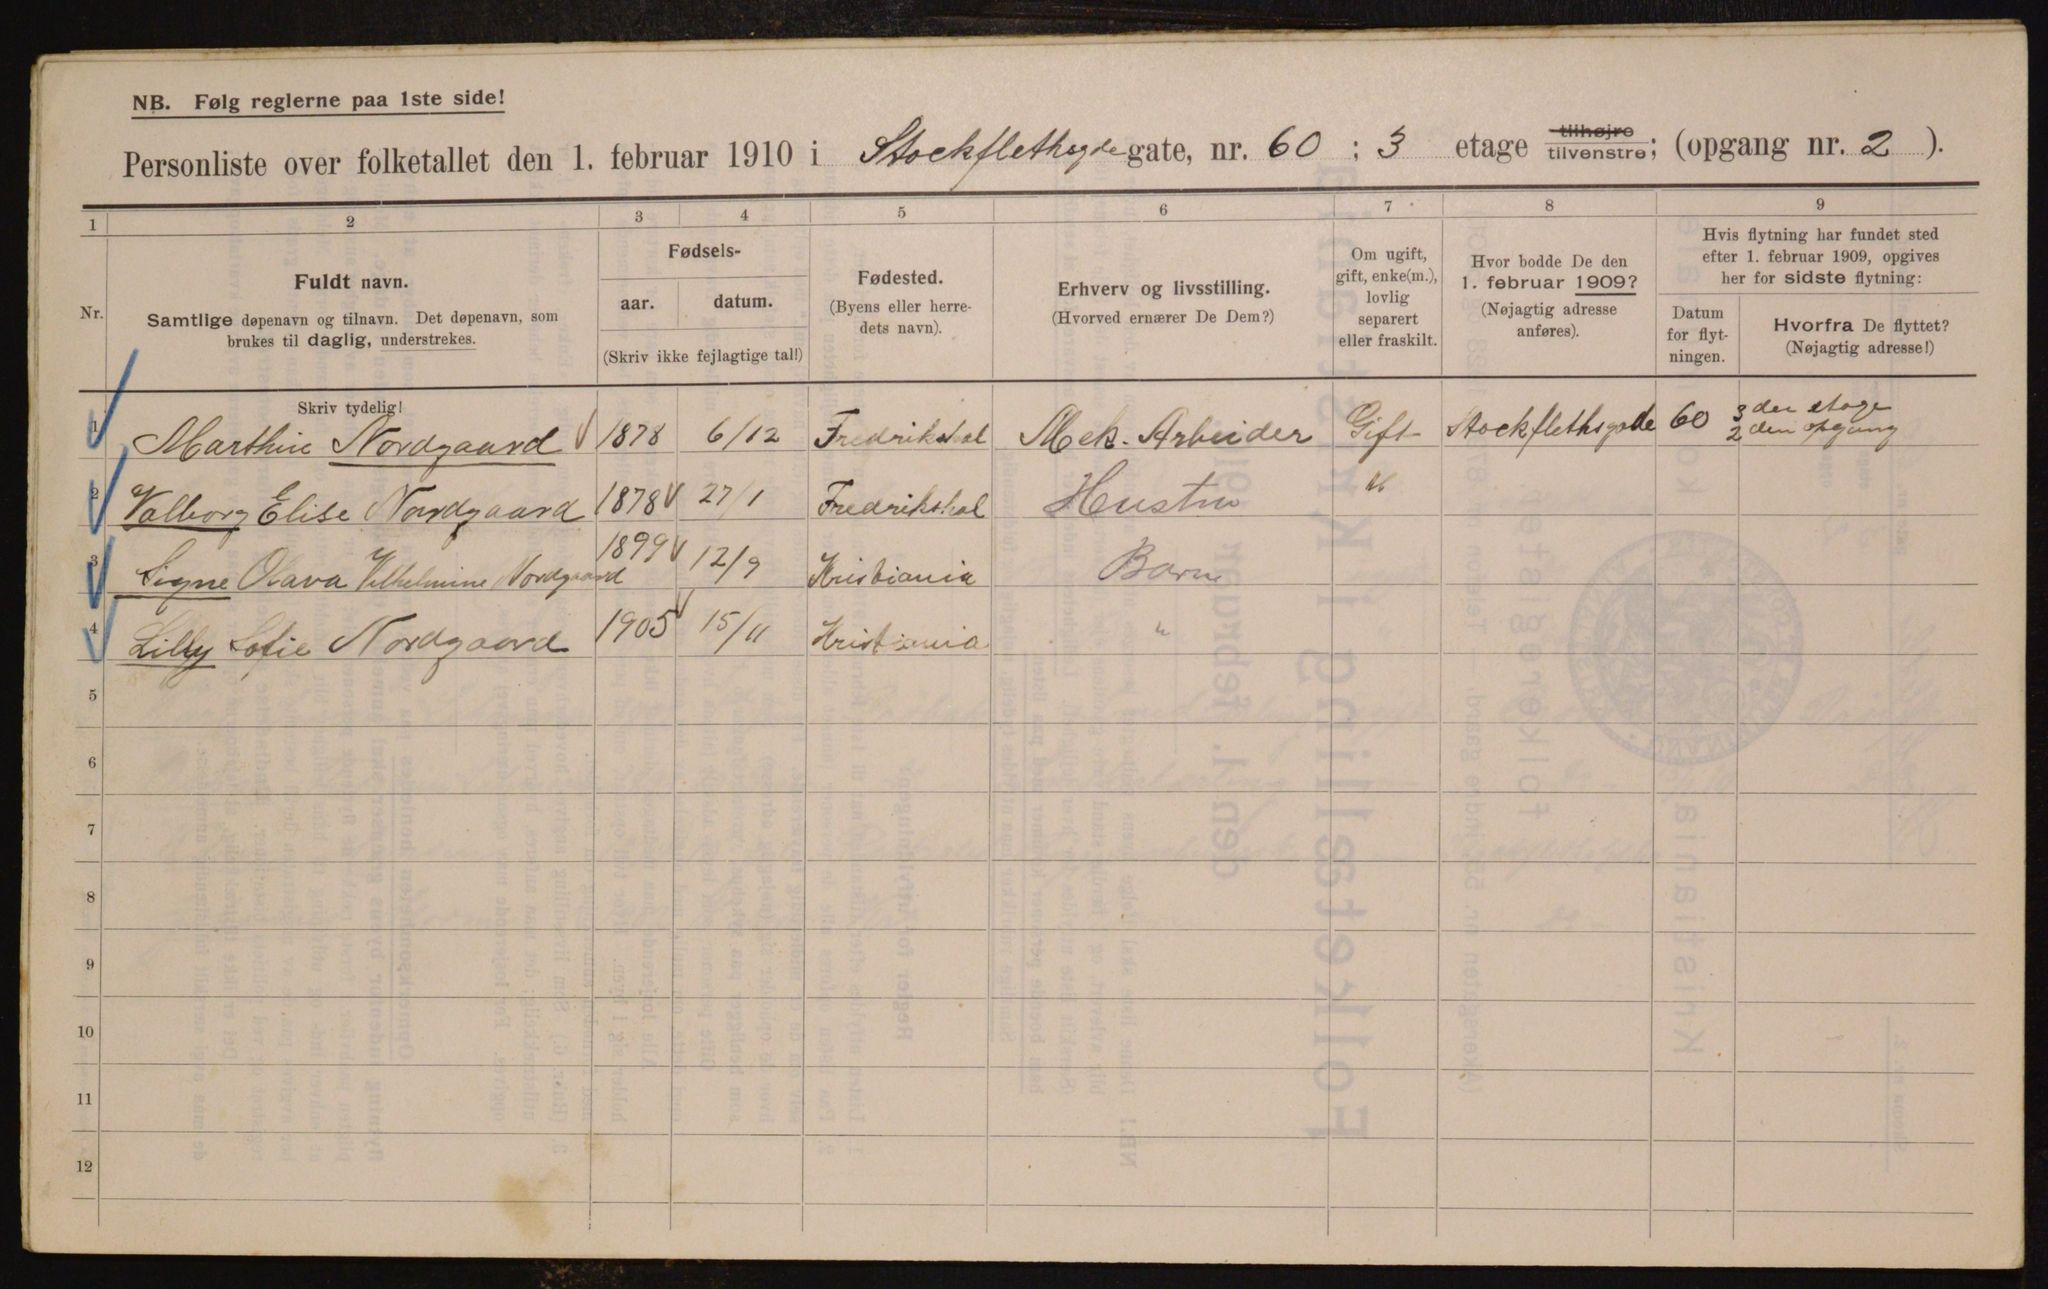 NB. Følg reglerne paa 1ste side!
Personliste over folketallet den 1. februar 1910 i Stockflethsgde gate, nr. 60 ; 3 etage tilhøjre tilvenstre; (opgang nr. 2 ).
1 2 3 4 5 6 7 8 9
Nr.
Fuldt navn.
Samtlige døpenavn og tilnavn. Det døpenavn, som
brukes til daglig, understrekes.
Fødsels-
aar. datum.
(Skriv ikke fejlagtige tal!)
Fødested.
(Byens eller herre-
dets navn).
Erhverv og livsstilling.
(Hvorved ernærer De Dem?)
Om ugift,
gift, enke(m.),
lovlig
separert
eller fraskilt.
Hvor bodde De den
1. februar 1909?
(Nøjagtig adresse
anføres).
Hvis flytning har fundet sted
efter 1. februar 1909, opgives
her for sidste flytning:
Datum
for flyt-
ningen.
Hvorfra De flyttet?
(Nøjagtig adresse!)
Skriv tydelig!
1 Marthin Nordgaard 1878 6/12 Fredrikshal Mek. Arbeider Gift Stockflethsgade 60 3 der etage
2 den opgang
2 Valborg Elise Nordgaard 1878 27/1 Fredrikshal Hustru "
3 Signe Olava Vilhelmine Nordgaard 1899 12/9 Kristiania Barn
4 Lilly Sofie Nordgaard 1905 15/11 Kristiania "
5
6
7
8
9
10
11
12